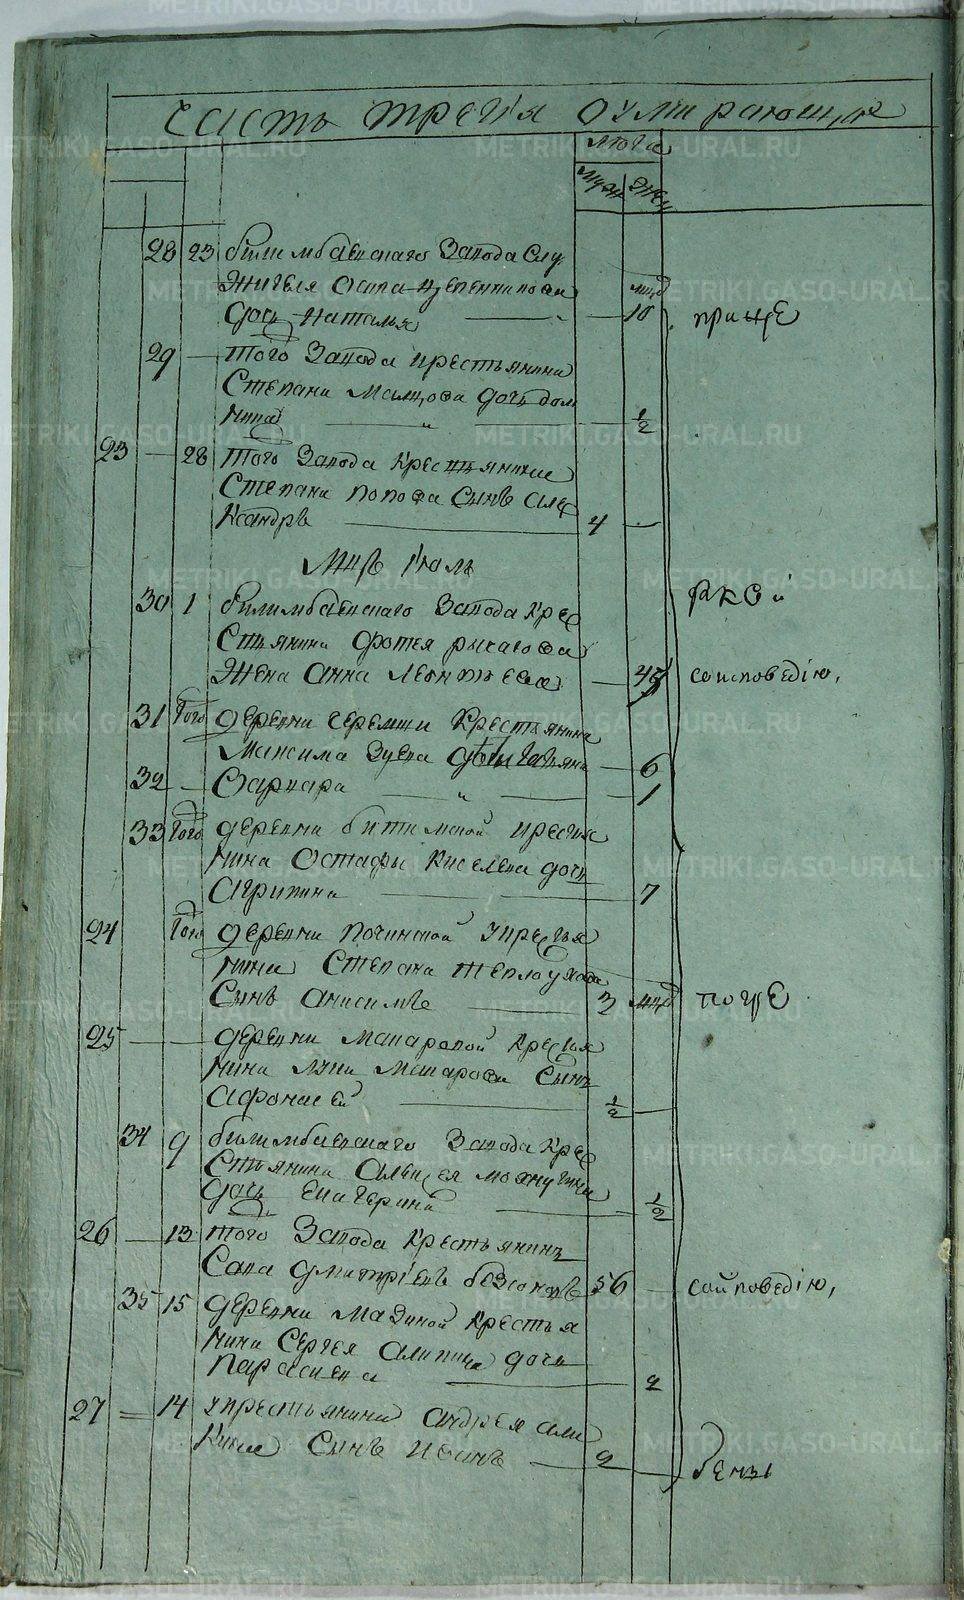 часть третїя о умирающихъ
лѣта
муж жен
28 23 билимбаевскаго завода слу
жителя осипа
дочь наталья 10
29 того завода крестьянина
степана дочь дом
ника 1/2
23 28 того завода крестьянина
степана попова сынъ але
ксандръ 4
Мцъ Іюль
30 1 билимбаевскаго завода кре
стьянина фотея рысагова
жена анна леонтьева 45 со исповедію,
31 того деревни черемши крестьянина
максима зуева дочь 6
32 варвара 1
33 того деревни битимской крестья
нина остафья киселева дочь
агрипина 7
24 того деревни починской крестья
нина степана теплоухова
сынъ анисимъ 3
25 деревни макаровой крестья
нина луки макарова сынъ
афонасей 1/2
34 9 билимбаевскаго завода кре
стьянина алексея
дочь екатерина 1/2
26 13 того завода крестьянинъ
сава дмитріевъ безсоновъ 56 со исповедію,
35 15 деревни крестья
нина сергея алипина дочь
парасковья 2
27 14 крестьянина андрея али
кина сынъ иванъ 2
METRIKI.GASO-URAL.RU